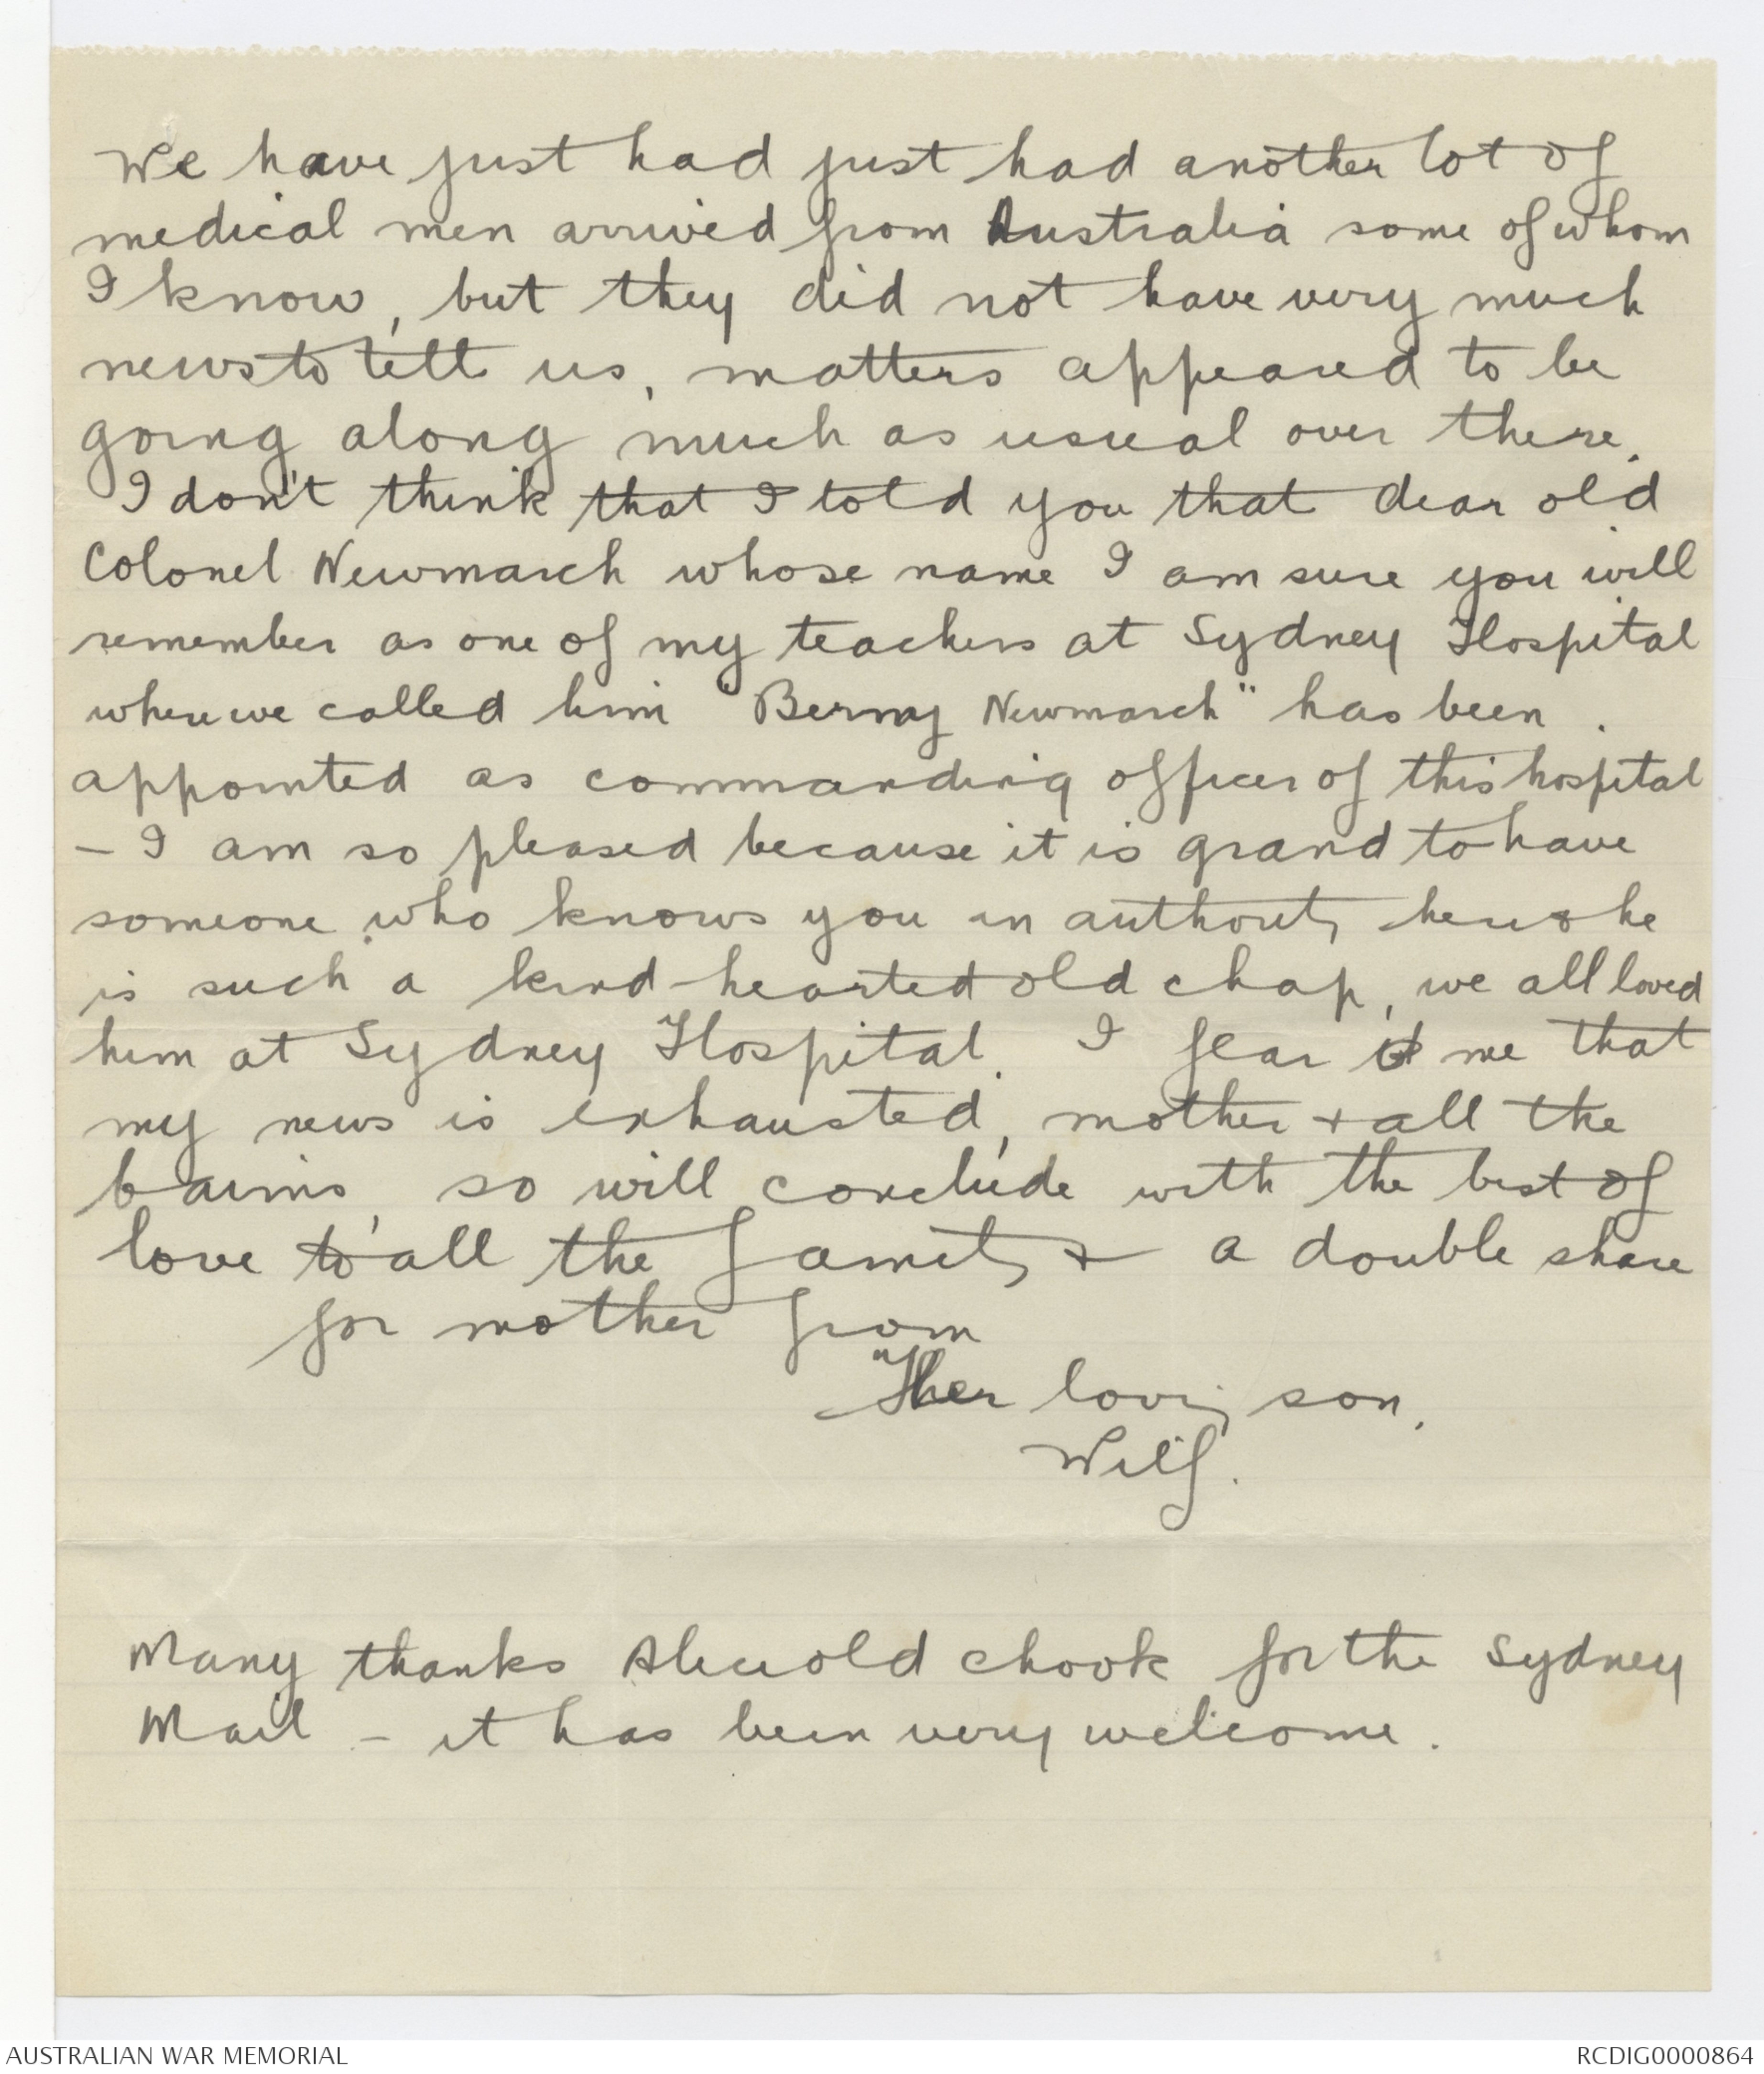 We have just had just had another lot of
medical men arrived from Australia some of whom
I know, but they did not have very much
news to tell us, matters appeared to be
going along much as usual over there.
I don't think that I told you that dear old
Colonel Newmarch whose name I am sure you will
remember as one of my teachers at Sydney Hospital
where we called him "Berny Newmarch" has been
appointed as commanding officer of this hospital
- I am so pleased because it is grand to have
someone who knows you in authority here & he
is such a kind-hearted old chap, we all loved
him at Sydney Hospital. I fear it me that
my news is exhausted, mother + all the
bairns, so will conclude with the best of
love to all the family & a double share
for mother from
"Her loving son,
Wilf.
Many thanks Alice old chook for the Sydney
Mail - it has been very welcome.
AUSTRALIAN WAR MEMORIAL
RCDIG0000864